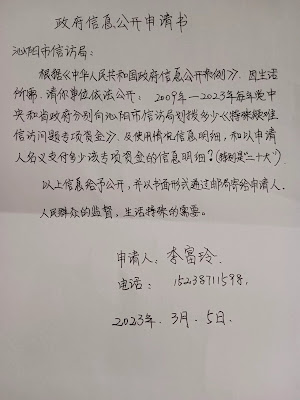 政府信息公开申请书
沁阳市信访局:
根据《中华人民共和国政府信息公开条例》,因生活
所需,请你单位依法公开:2009年—2023年每年度中
央和省政府分别向沁阳市信访局划拨多少《特殊疑难
信访问题专项资金》及使用情况信息明细,和以申请
人名义支付多少该专项资金的信息明细?(特别是"二十大")
以上信息给予公开,并以书面形式通过邮局寄给申请人.
人民群众的监督,生活特殊的需要。
申请人:李富玲
电话:15238711598.
2023年.3月.5日.